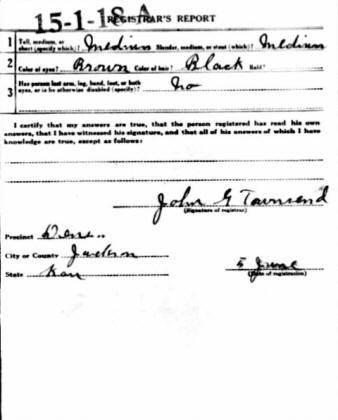 15-1-18 A
REGISTRAR'S REPORT
1 Tall, medium, or short (specify which)? Medium Slender, medium, or stout (which)? Medium
2 Color of eyes? Brown Color of hair? Black Bald?
3 Has person lost arm, leg, hand, foot, or both eyes, or is he otherwise disabled (specify)? No
I certify that my answers are true, that the person registered has read his own
answers, that I have witnessed his signature, and that all of his answers of which I have
knowledge are true, except as follows:
John G Townsend
(Signature of registrar)
Precinct
City or County Jackson
State Kan
5 June
(Date of registration)